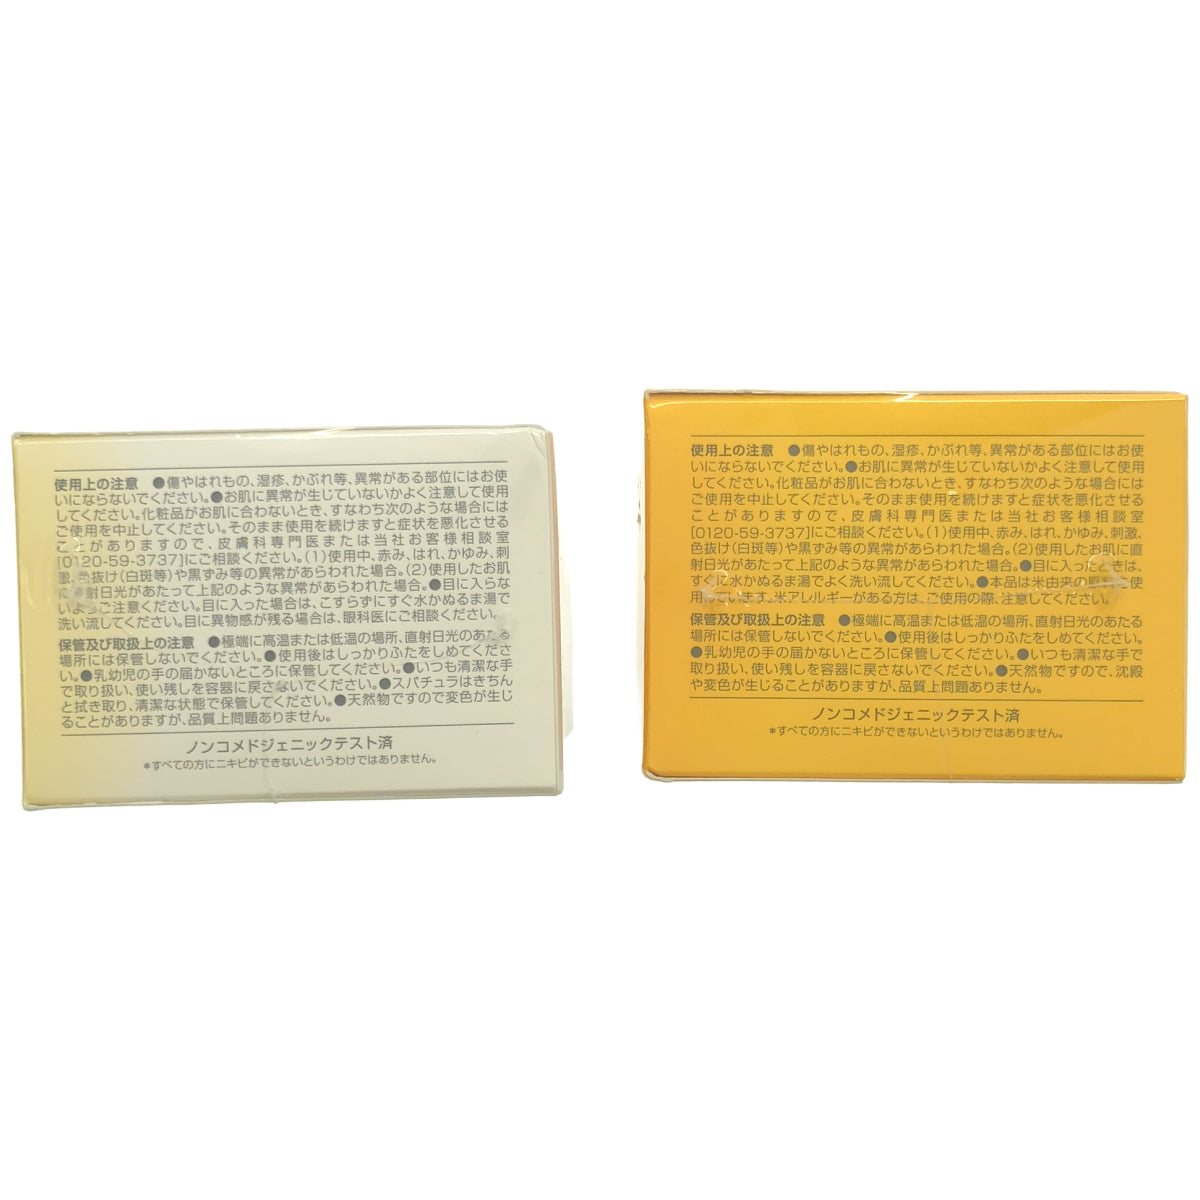 使用上の注意 ●傷やはれもの、湿疹、かぶれ等、異常がある部位にはお使
いにならないでください。●お肌に異常が生じていないかよく注意して使用
してください。化粧品がお肌に合わないとき、すなわち次のような場合には
ご使用を中止してください。そのまま使用を続けますと症状を悪化させる
ことがありますので、皮膚科専門医または当社お客様相談室
[0120-59-3737]にご相談ください。(1)使用中、赤み、はれ、かゆみ、刺
激、色抜け(白斑等)や黒ずみ等の異常があらわれた場合。(2)使用したお肌
に直射日光があたって上記のような異常があらわれた場合。●目に入らな
いようご注意ください。目に入った場合は、こすらずにすぐ水かぬるま湯で
洗い流してください。目に異物感が残る場合は、眼科医にご相談ください。
保管及び取扱上の注意 ●極端に高温または低温の場所、直射日光のあたる
場所には保管しないでください。●使用後はしっかりふたをしめてくださ
い。●乳幼児の手の届かないところに保管してください。●いつも清潔な手
で取り扱い、使い残しを容器に戻さないでください。●スパチュラはきちん
と拭き取り、清潔な状態で保管してください。●天然物ですので変色が生じ
ることがありますが、品質上問題ありません。
ノンコメドジェニックテスト済
*すべての方にニキビができないというわけではありません。
使用上の注意 ●傷やはれもの、湿疹、かぶれ等、異常がある部位にはお使
いにならないでください。●お肌に異常が生じていないかよく注意して使用
してください。化粧品がお肌に合わないとき、すなわち次のような場合には
ご使用を中止してください。そのまま使用を続けますと症状を悪化させる
ことがありますので、皮膚科専門医または当社お客様相談室
[0120-59-3737]にご相談ください。(1)使用中、赤み、はれ、かゆみ、刺激、
色抜け(白斑等)や黒ずみ等の異常があらわれた場合。(2)使用したお肌に直
射日光があたって上記のような異常があらわれた場合。●目に入ったときは、
すぐに水かぬるま湯でよく洗い流してください。●本品は米由来の原料を使
用しています。米アレルギーがある方は、ご使用の際、注意してください。
保管及び取扱上の注意 ●極端に高温または低温の場所、直射日光のあたる
場所には保管しないでください。●使用後はしっかりふたをしめてください。
●乳幼児の手の届かないところに保管してください。●いつも清潔な手で
取り扱い、使い残しを容器に戻さないでください。●天然物ですので、沈殿
や変色が生じることがありますが、品質上問題ありません。
ノンコメドジェニックテスト済
*すべての方にニキビができないというわけではありません。